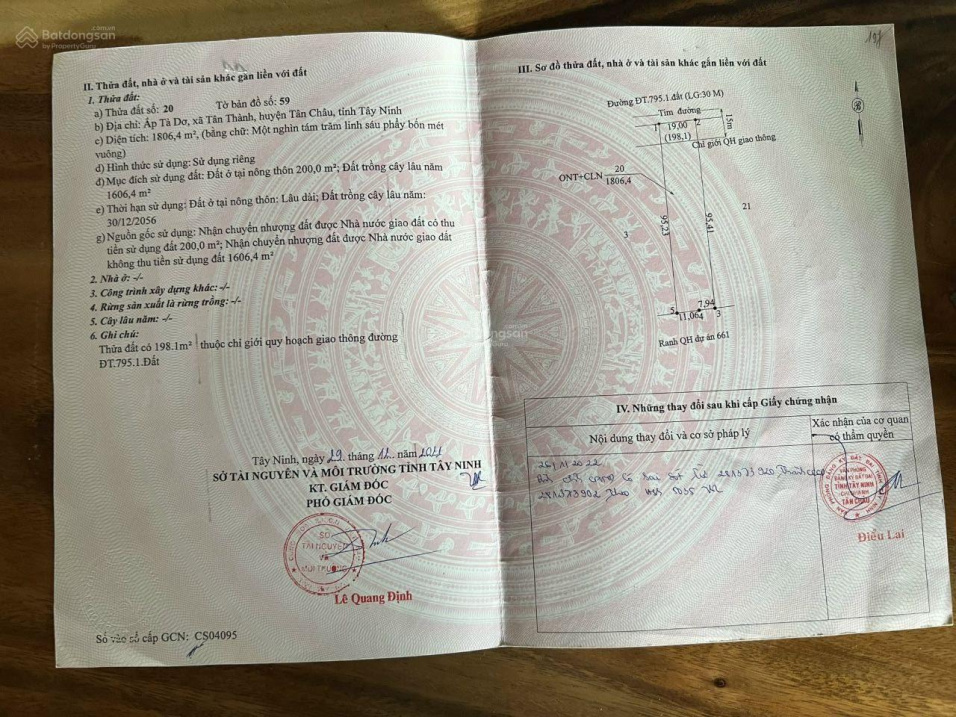 Batdongsan
.com.vn
by PropertyGuru
II. Thửa đất, nhà ở và tài sản khác gắn liền với đất
1. Thửa đất:
a) Thửa đất số: 20 Tờ bản đồ số: 59
b) Địa chỉ: Ấp Tà Dơ, xã Tân Thành, huyện Tân Châu, tỉnh Tây Ninh
c) Diện tích: 1806,4 m², (bằng chữ: Một nghìn tám trăm linh sáu phẩy bốn mét
vuông)
d) Hình thức sử dụng: Sử dụng riêng
đ) Mục đích sử dụng đất: Đất ở tại nông thôn 200,0 m²; Đất trồng cây lâu năm
1606,4 m²
e) Thời hạn sử dụng: Đất ở tại nông thôn: Lâu dài; Đất trồng cây lâu năm:
30/12/2056
g) Nguồn gốc sử dụng: Nhận chuyển nhượng đất được Nhà nước giao đất có thu
tiền sử dụng đất 200,0 m²; Nhận chuyển nhượng đất được Nhà nước giao đất
không thu tiền sử dụng đất 1606,4 m²
2. Nhà ở: -/-
3. Công trình xây dựng khác: -/-
4. Rừng sản xuất là rừng trồng: -/-
5. Cây lâu năm: -/-
6. Ghi chú:
Thửa đất có 198.1m² thuộc chỉ giới quy hoạch giao thông đường
ĐT.795.1.Đất
Tây Ninh, ngày 29 tháng 12 năm
SỞ TÀI NGUYÊN VÀ MÔI TRƯỜNG TỈNH TÂY NINH
KT. GIÁM ĐỐC
PHÓ GIÁM ĐỐC
SỞ
TÀI NGUYÊN
VÀ
MÔI TRƯỜNG
Lê Quang Định
Số vào sổ cấp GCN: CS04095
III. Sơ đồ thửa đất, nhà ở và tài sản khác gắn liền với đất
Đường ĐT.795.1.đất (LG:30 M)
Tim đường
1 19,00 2
(198,1)
15m
Chỉ giới QH giao thông
ONT+CLN 20
1806,4
21
3
95,23
95,41
7,94
5 11,064 3
Ranh QH dự án 661
IV. Những thay đổi sau khi cấp Giấy chứng nhận
Nội dung thay đổi và cơ sở pháp lý
Xác nhận của cơ quan
có thẩm quyền
VĂN PHÒNG
ĐĂNG KÝ ĐẤT ĐAI
TỈNH TÂY NINH
CHI NHÁNH
TÂN CHÂU
Điểu Lai